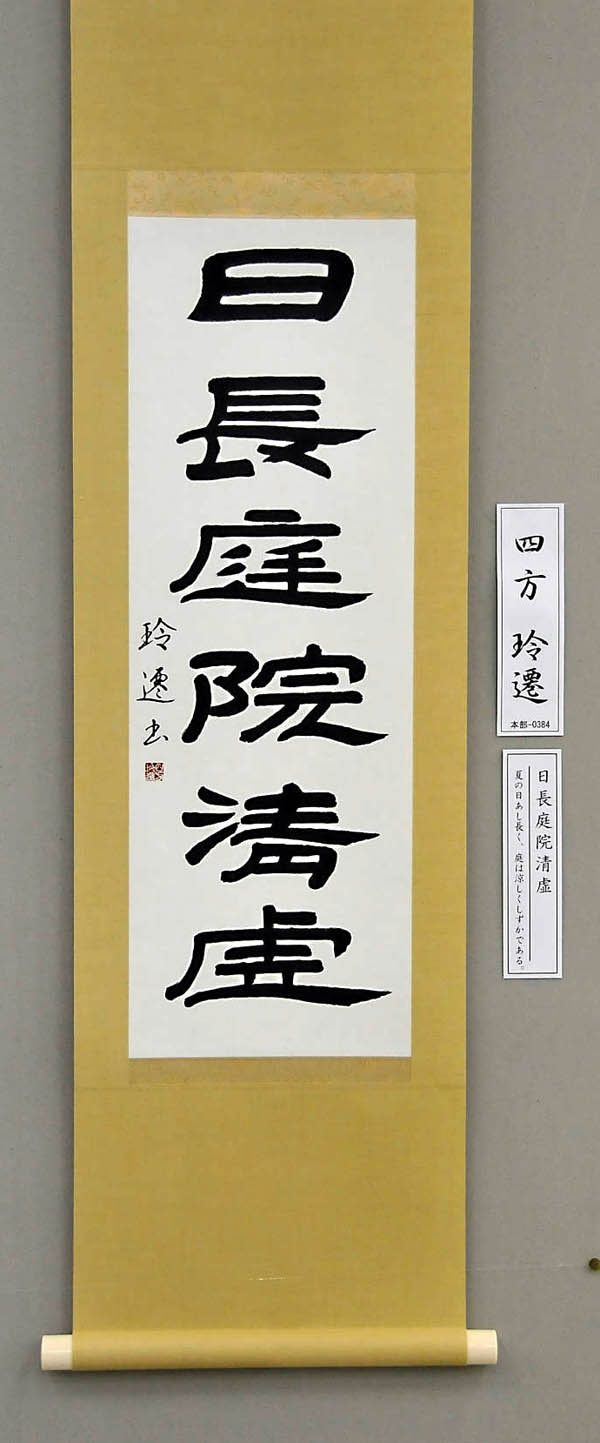 日長庭院清虚
玲遷書
四方 玲遷
本部-0384
日長庭院清虚
夏の日あし長く、庭は涼しくしずかである。